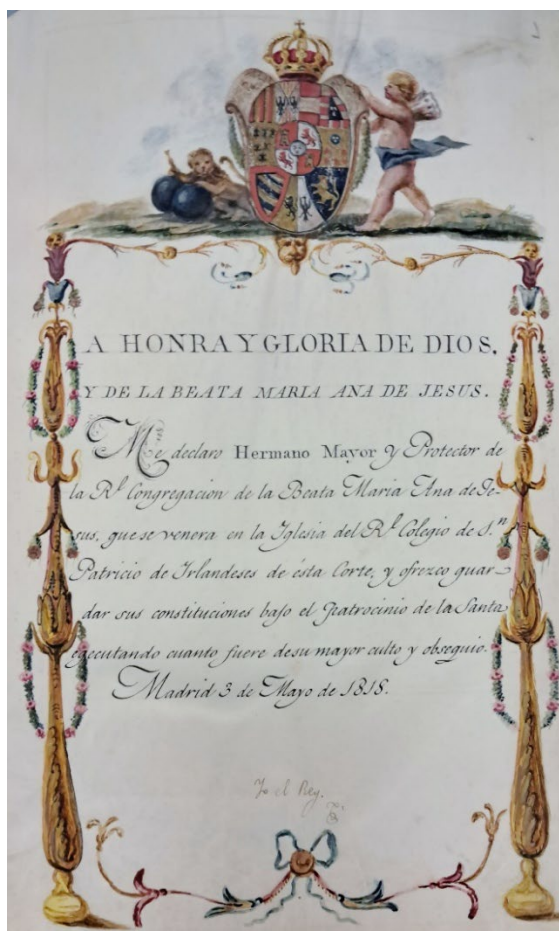 A HONRA Y GLORIA DE DIOS,
Y DE LA BEATA MARIA ANA DE JESUS.
Me declaro Hermano Mayor y Protector de
la Rl. Congregacion de la Beata Maria Ana de Je-
sus, que se venera en la Iglesia del Rl. Colegio de Sn.
Patricio de Irlandeses de ésta Corte, y ofrezco guar-
dar sus constituciones bajo el Patrocinio de la Santa
egecutando cuanto fuere de su mayor culto y obsequio.
Madrid 3 de Mayo de 1818.
Yo el Rey.